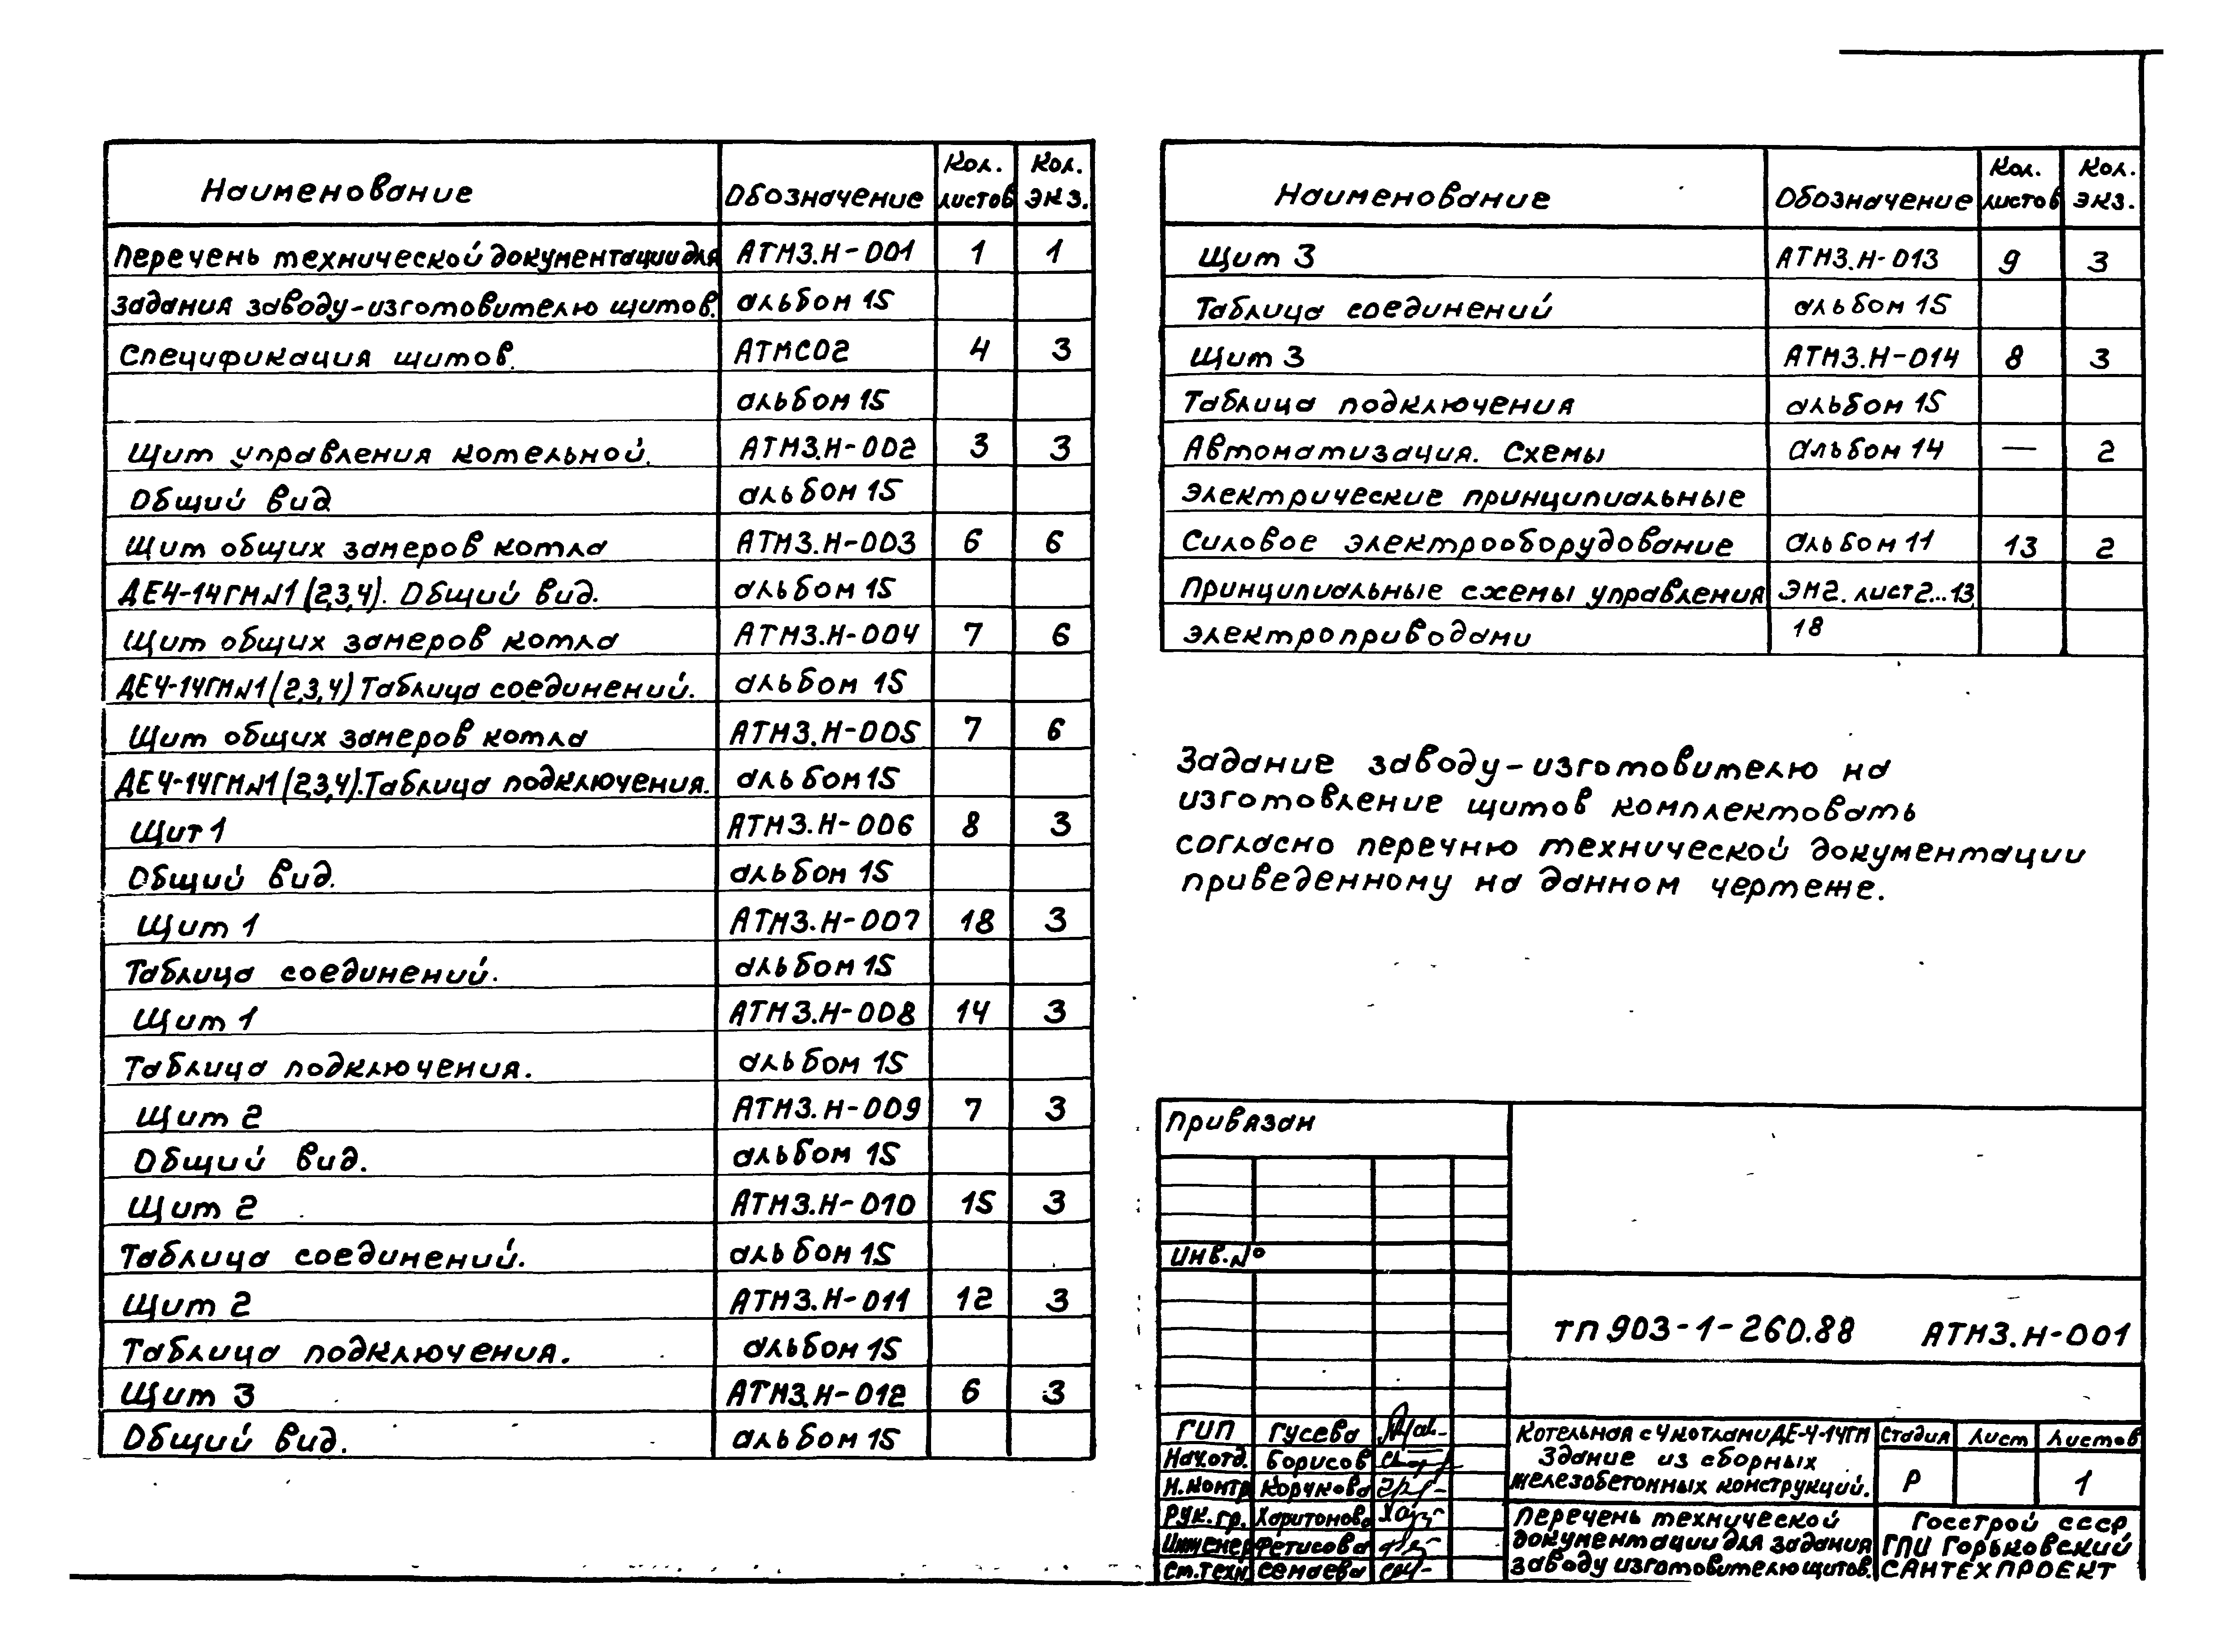 Наименование Обозначение Кол. листов Кол. экз.
Перечень технической документации для АТМ3.Н-001 1 1
задания заводу-изготовителю щитов. альбом 15
Спецификация щитов. АТМСО2 4 3
альбом 15
Щит управления котельной. АТМ3.Н-002 3 3
Общий вид альбом 15
Щит общих замеров котла АТМ3.Н-003 6 6
ДЕ4-14ГМ№1(2,3,4). Общий вид. альбом 15
Щит общих замеров котла АТМ3.Н-004 7 6
ДЕ4-14ГМ№1(2,3,4) Таблица соединений. альбом 15
Щит общих замеров котла АТМ3.Н-005 7 6
ДЕ4-14ГМ№1(2,3,4).Таблица подключения. альбом 15
Щит 1 АТМ3.Н-006 8 3
Общий вид. альбом 15
Щит 1 АТМ3.Н-007 18 3
Таблица соединений. альбом 15
Щит 1 АТМ3.Н-008 14 3
Таблица подключения. альбом 15
Щит 2 АТМ3.Н-009 7 3
Общий вид. альбом 15
Щит 2 АТМ3.Н-010 15 3
Таблица соединений. альбом 15
Щит 2 АТМ3.Н-011 12 3
Таблица подключения. альбом 15
Щит 3 АТМ3.Н-012 6 3
Общий вид. альбом 15
Наименование Обозначение Кол. листов Кол. экз.
Щит 3 АТМ3.Н-013 9 3
Таблица соединений альбом 15
Щит 3 АТМ3.Н-014 8 3
Таблица подключения альбом 15
Автоматизация. Схемы альбом 14 — 2
электрические принципиальные
Силовое электрооборудование альбом 11 13 2
Принципиальные схемы управления ЭМ2. лист 2...13
электроприводами 18
Задание заводу-изготовителю на
изготовление щитов комплектовать
согласно перечню технической документации
приведенному на данном чертеже.
Привязан
Инв.№
ТП 903-1-260.88 АТМ3.Н-001
ГИП Гусева
Нач.отд. Борисов
Н.контр Корчкова
Рук.гр. Харитонова
Инженер Фетисова
Ст.техн Семаева
Котельная с 4 котлами ДЕ-4-14ГМ
Здание из сборных
железобетонных конструкций.
Стадия Лист Листов
Р 1
Перечень технической
документации для задания
заводу изготовителю щитов.
Госстрой СССР
ГПИ Горьковский
САНТЕХПРОЕКТ